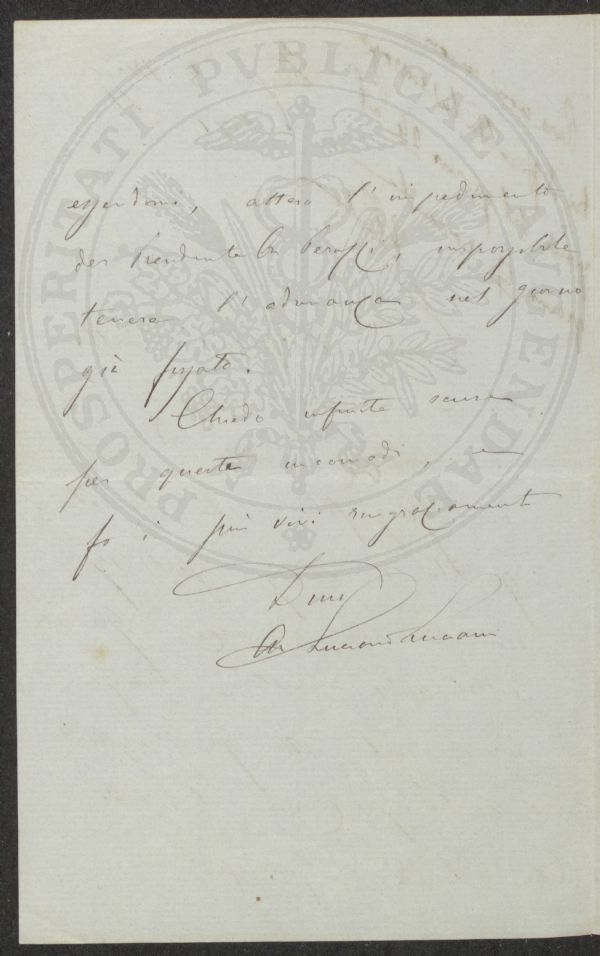 PROSPERITATI PVBLICAE AVGENDAE
essendomi, atteso l'impedimento
del Presidente Peruzzi, impossibile
tenere l'adunanza nel giorno
già fissato.
Chiedo infinite scuse
per questi incomodi, e
fo i più vivi ringraziamenti